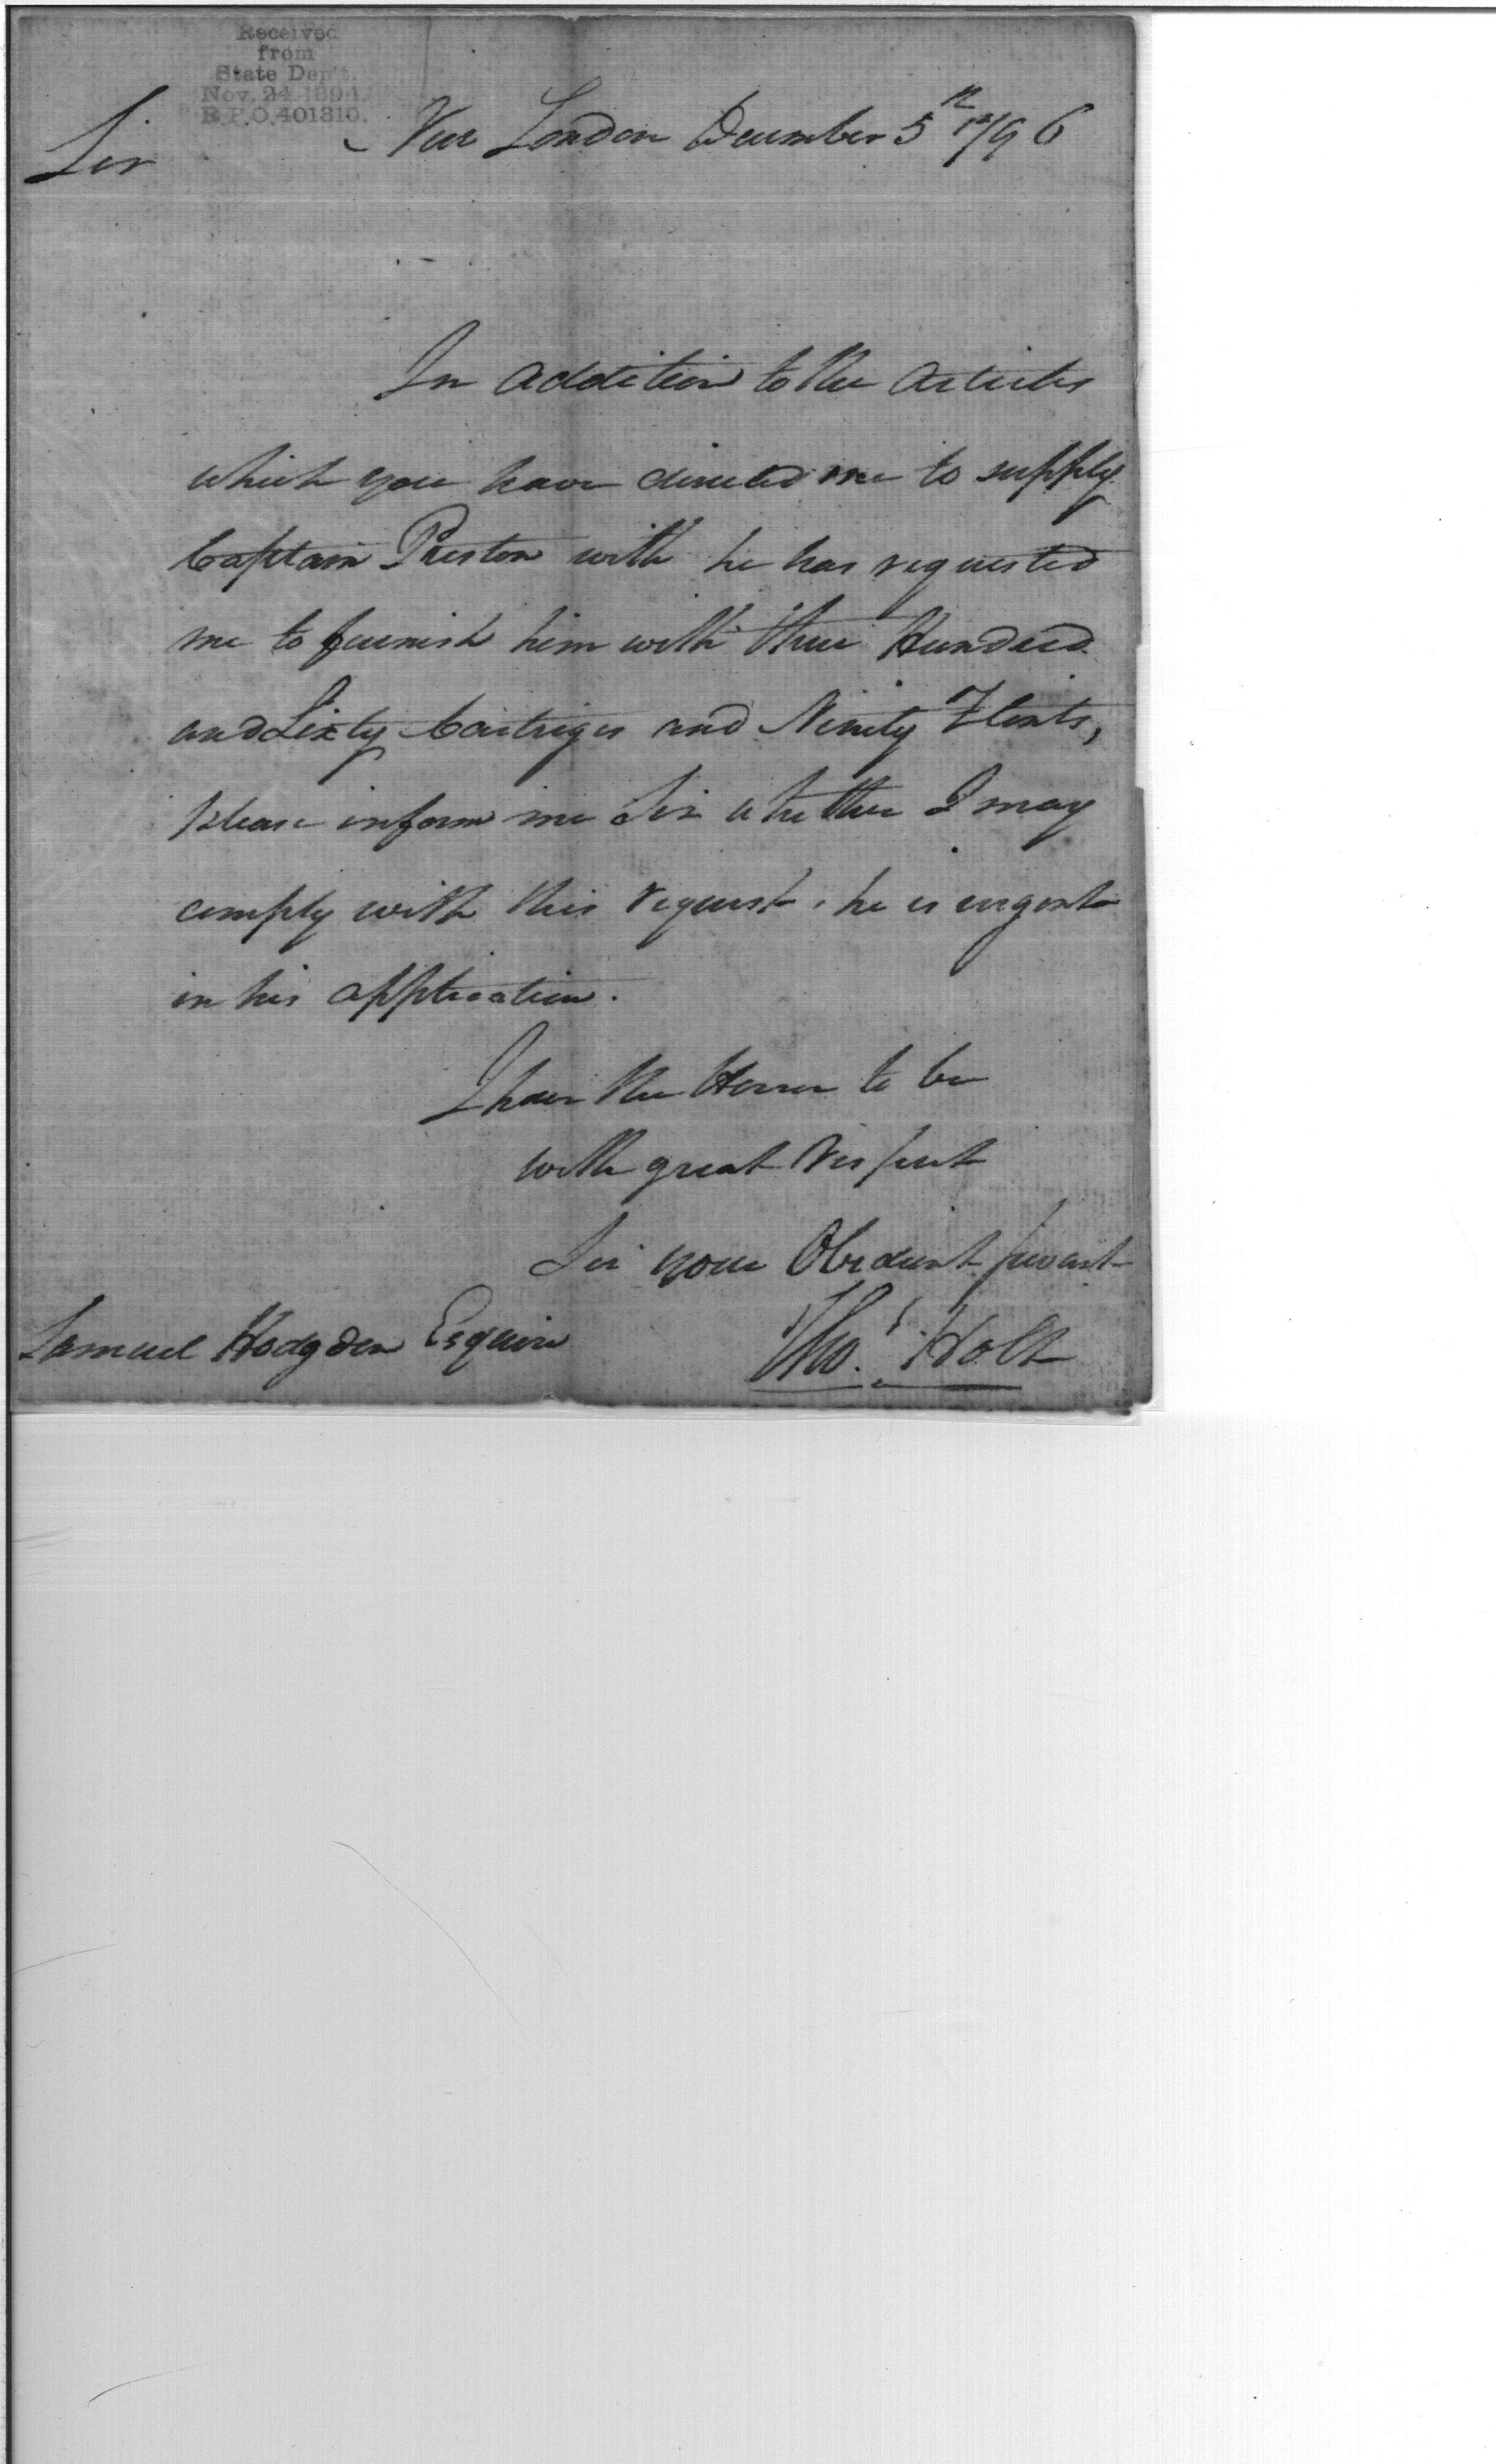 Received
from
State Dep't.
Nov. 24 1894.
R.P.O. 401310.
New London December 5th 1796
Sir
In addition to the Articles
which you have directed me to supply
Captain Preston with he has requested
me to furnish him with three Hundred
and Sixty Cartriges and Ninity Flints,
please inform me Sir whether I may
comply with this request, he is urgent
in his application.
I have the Honor to be
with great respect
Sir your Obedient servant
Samuel Hodgden Esquire
Thos. Holt